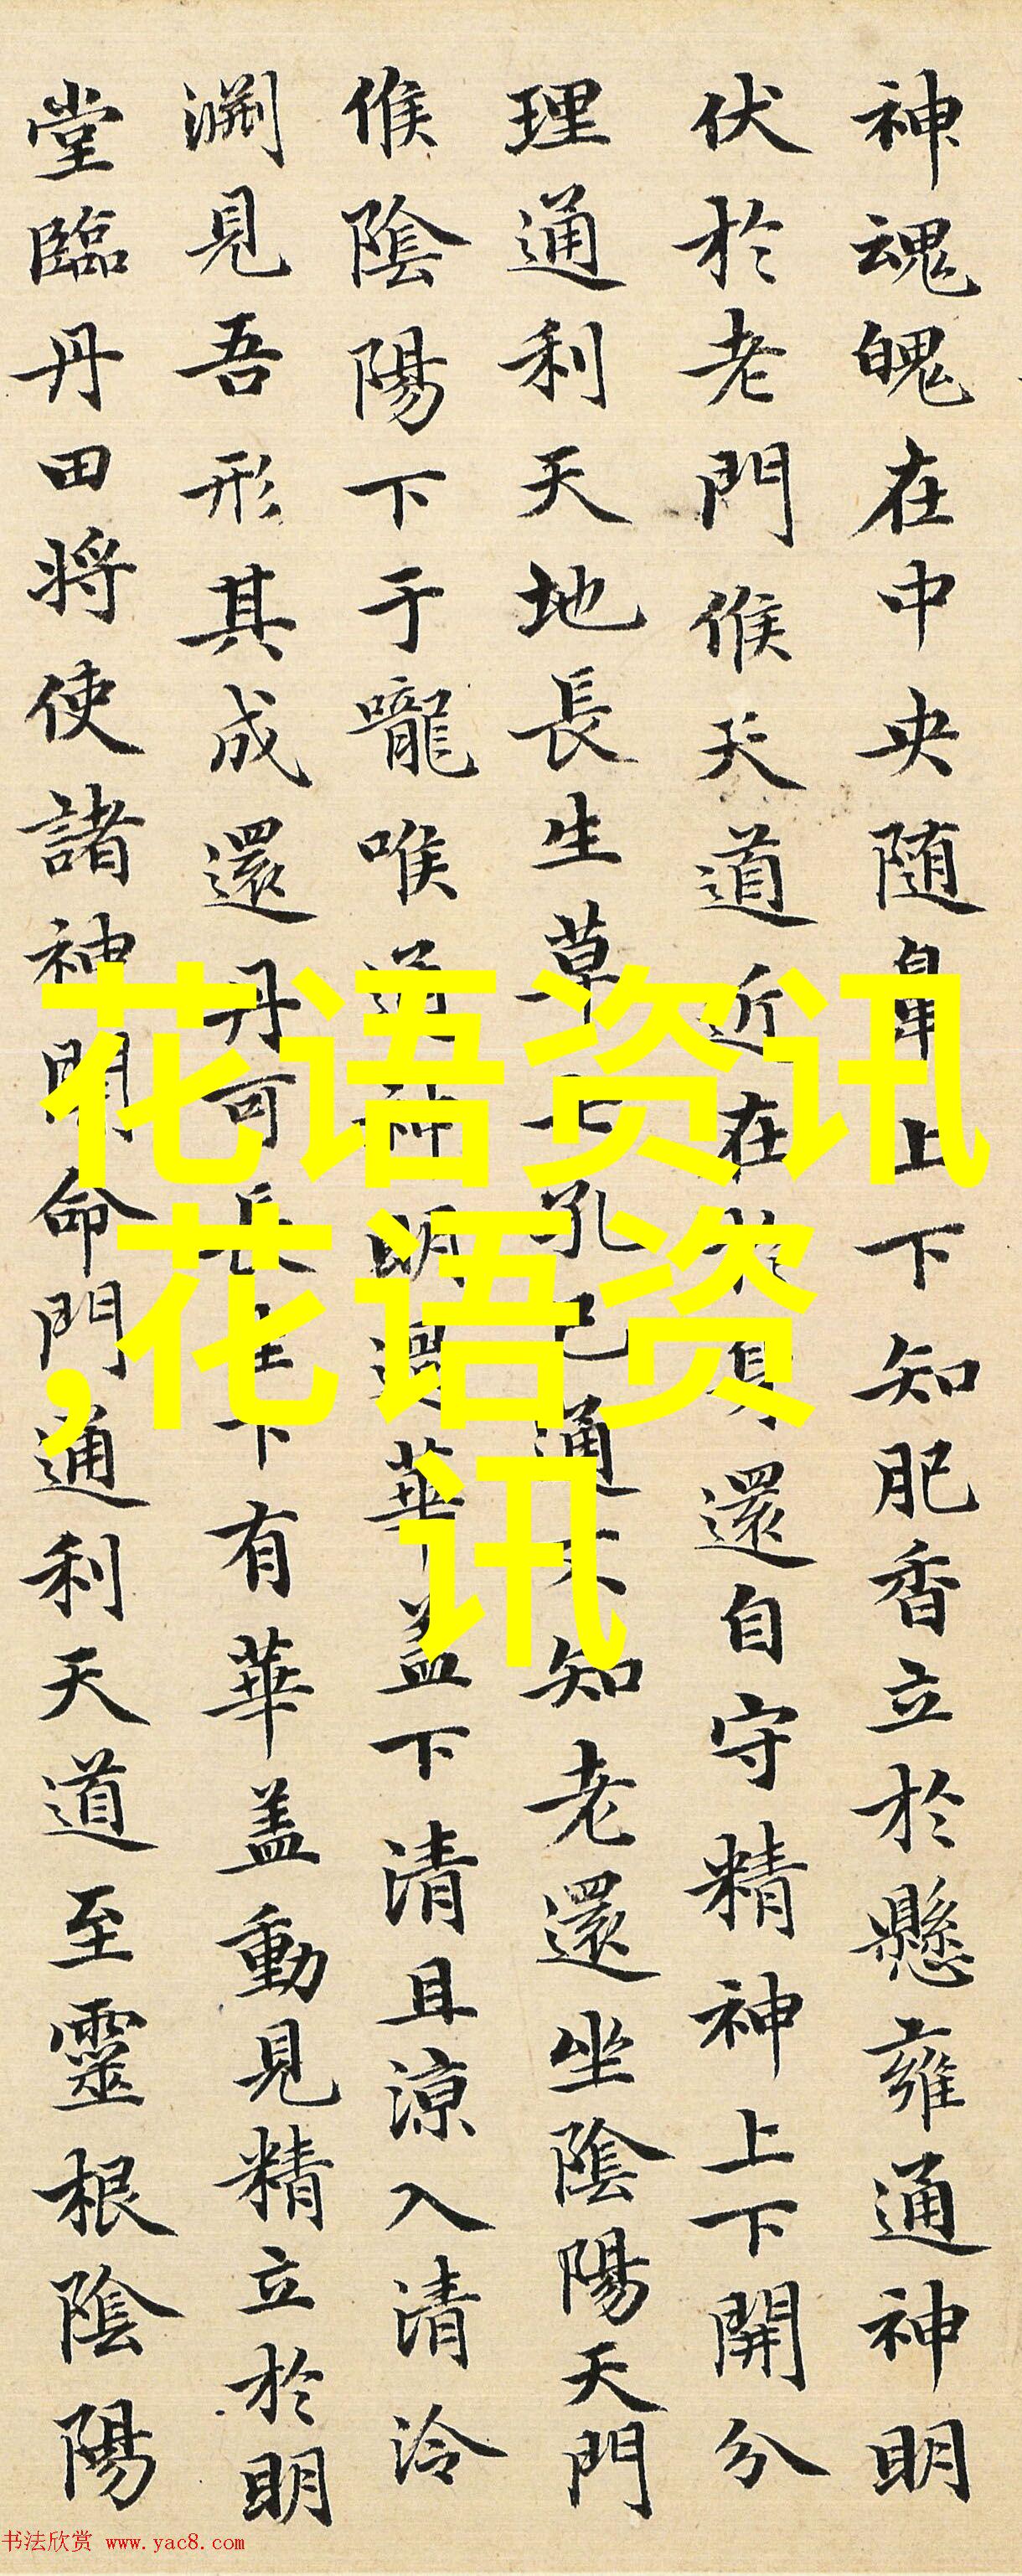 神魂魄在中央随鼻上下知肥香立於懸雍通神明
伏於老門候天道近在於身還自守精神上下開分
理通利天地長生草七孔已通不知老還坐陰陽天門
候陰陽下于嚨喉通神明過華盖下清且涼入清泠
渊見吾形其成還丹可長生下有華盖動見精立於明
堂臨丹田将使諸神開命門通利天道至靈根陰陽
花语资讯
,花语资
讯
书法欣赏 www.yac8.com